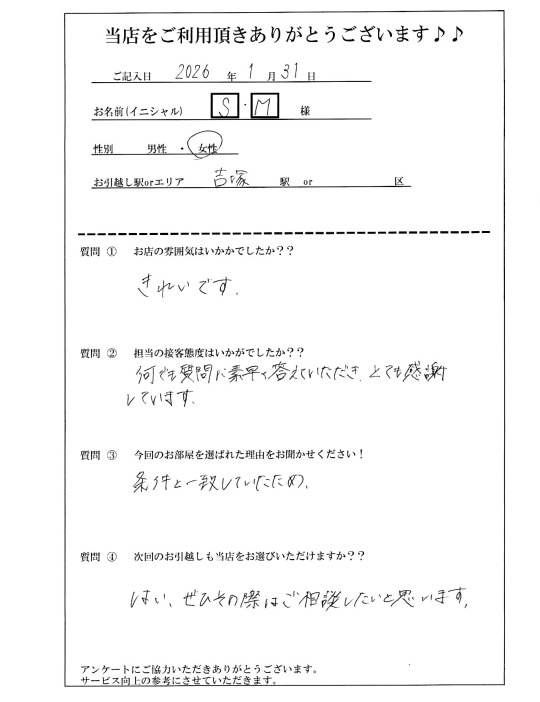 当店をご利用頂きありがとうございます♪♪
ご記入日 2026 年 1 月 31 日
お名前(イニシャル) S・M 様
性別 男性 ・ 女性
お引越し駅orエリア 吉塚 駅 or 区
質問 ① お店の雰囲気はいかかでしたか？？
きれいです.
質問 ② 担当の接客態度はいかがでしたか？？
何でも質問に素早く答えていただき、とても感謝
しています.
質問 ③ 今回のお部屋を選ばれた理由をお聞かせください！
条件と一致していたため.
質問 ④ 次回のお引越しも当店をお選びいただけますか？？
はい、ぜひその際はご相談したいと思います。
アンケートにご協力いただきありがとうございます。
サービス向上の参考にさせていただきます。